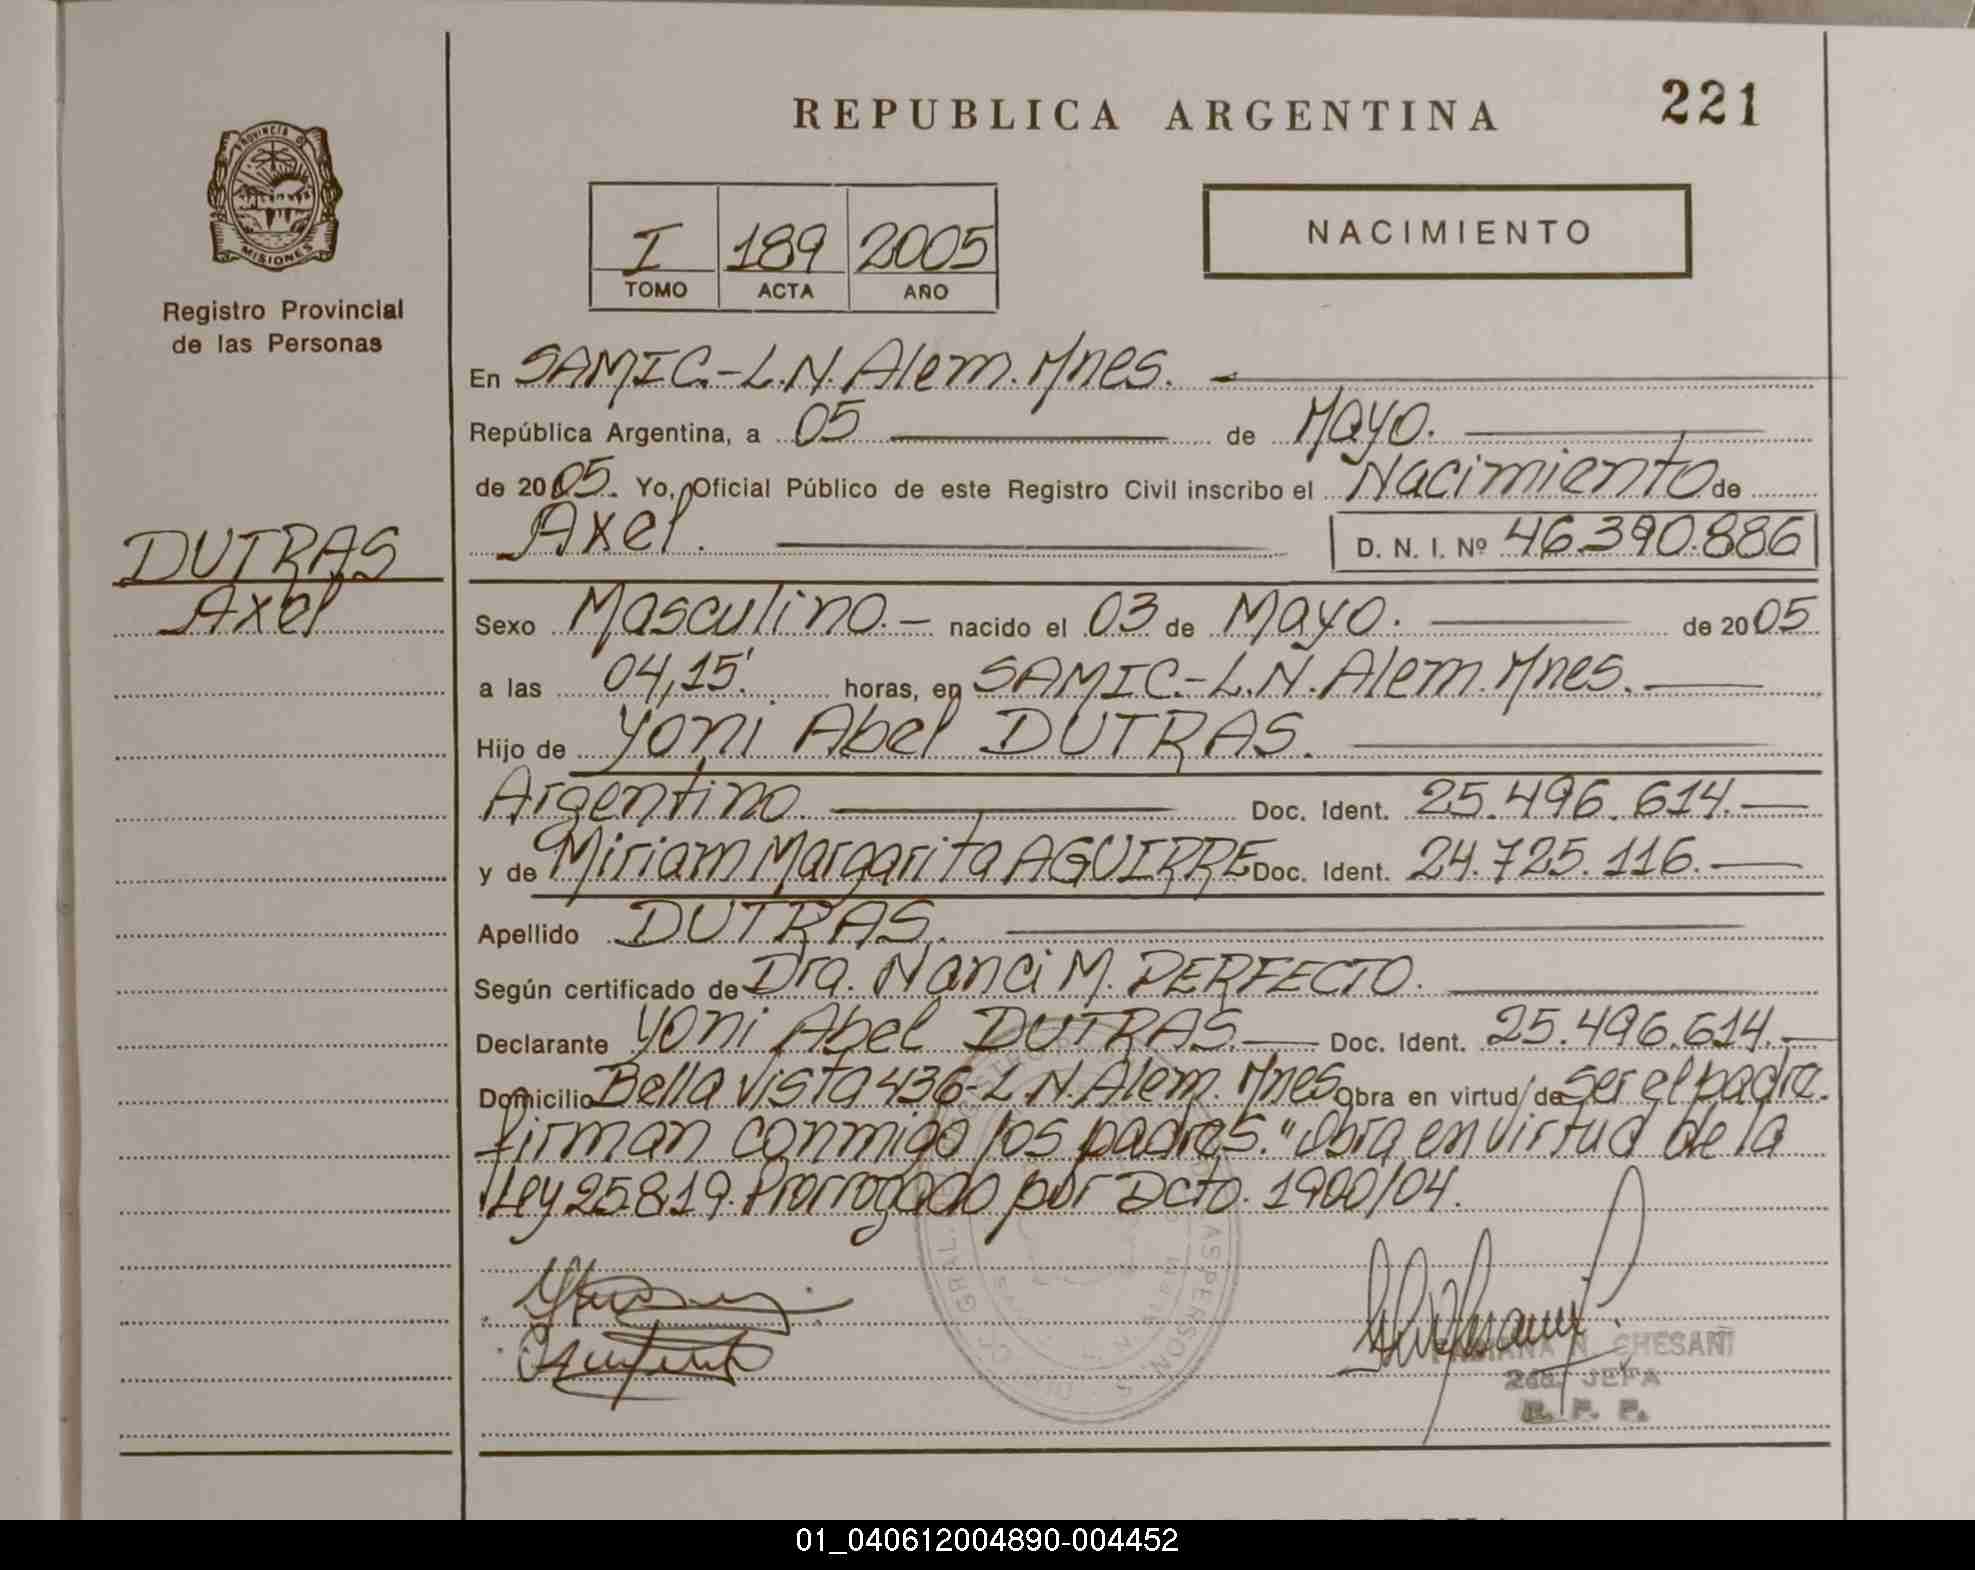 REPUBLICA ARGENTINA
221
PROVINCIA DE
MISIONES
Registro Provincial
de las Personas
I 189 2005
TOMO ACTA AÑO
NACIMIENTO
En SAMIC.-L.N. Alem. Mnes.
República Argentina, a 05 de Mayo.
de 2005. Yo, Oficial Público de este Registro Civil inscribo el Nacimiento de
Axel. D. N. I. Nº 46.390.886
DUTRAS
Axel
Sexo Masculino.- nacido el 03 de Mayo. de 2005
a las 04,15'. horas, en SAMIC.-L.N. Alem. Mnes.
Hijo de Yoni Abel DUTRAS.
Argentino Doc. Ident. 25.496.614.
y de Miriam Margarita AGUIRRE Doc. Ident. 24.725.116.
Apellido DUTRAS.
Según certificado de Dra. Nanci M. PERFECTO.
Declarante Yoni Abel DUTRAS. Doc. Ident. 25.496.614.
Domicilio Bella Vista 436-L.N. Alem. Mnes Obra en virtud de ser el padre.
firman conmigo los padres. "Obra en virtud de la
Ley 25.819. Prorrogado por Dcto. 1900/04.
FABIANA N. CHESANI
2da. JEFA
R. P. P.
01_040612004890-004452